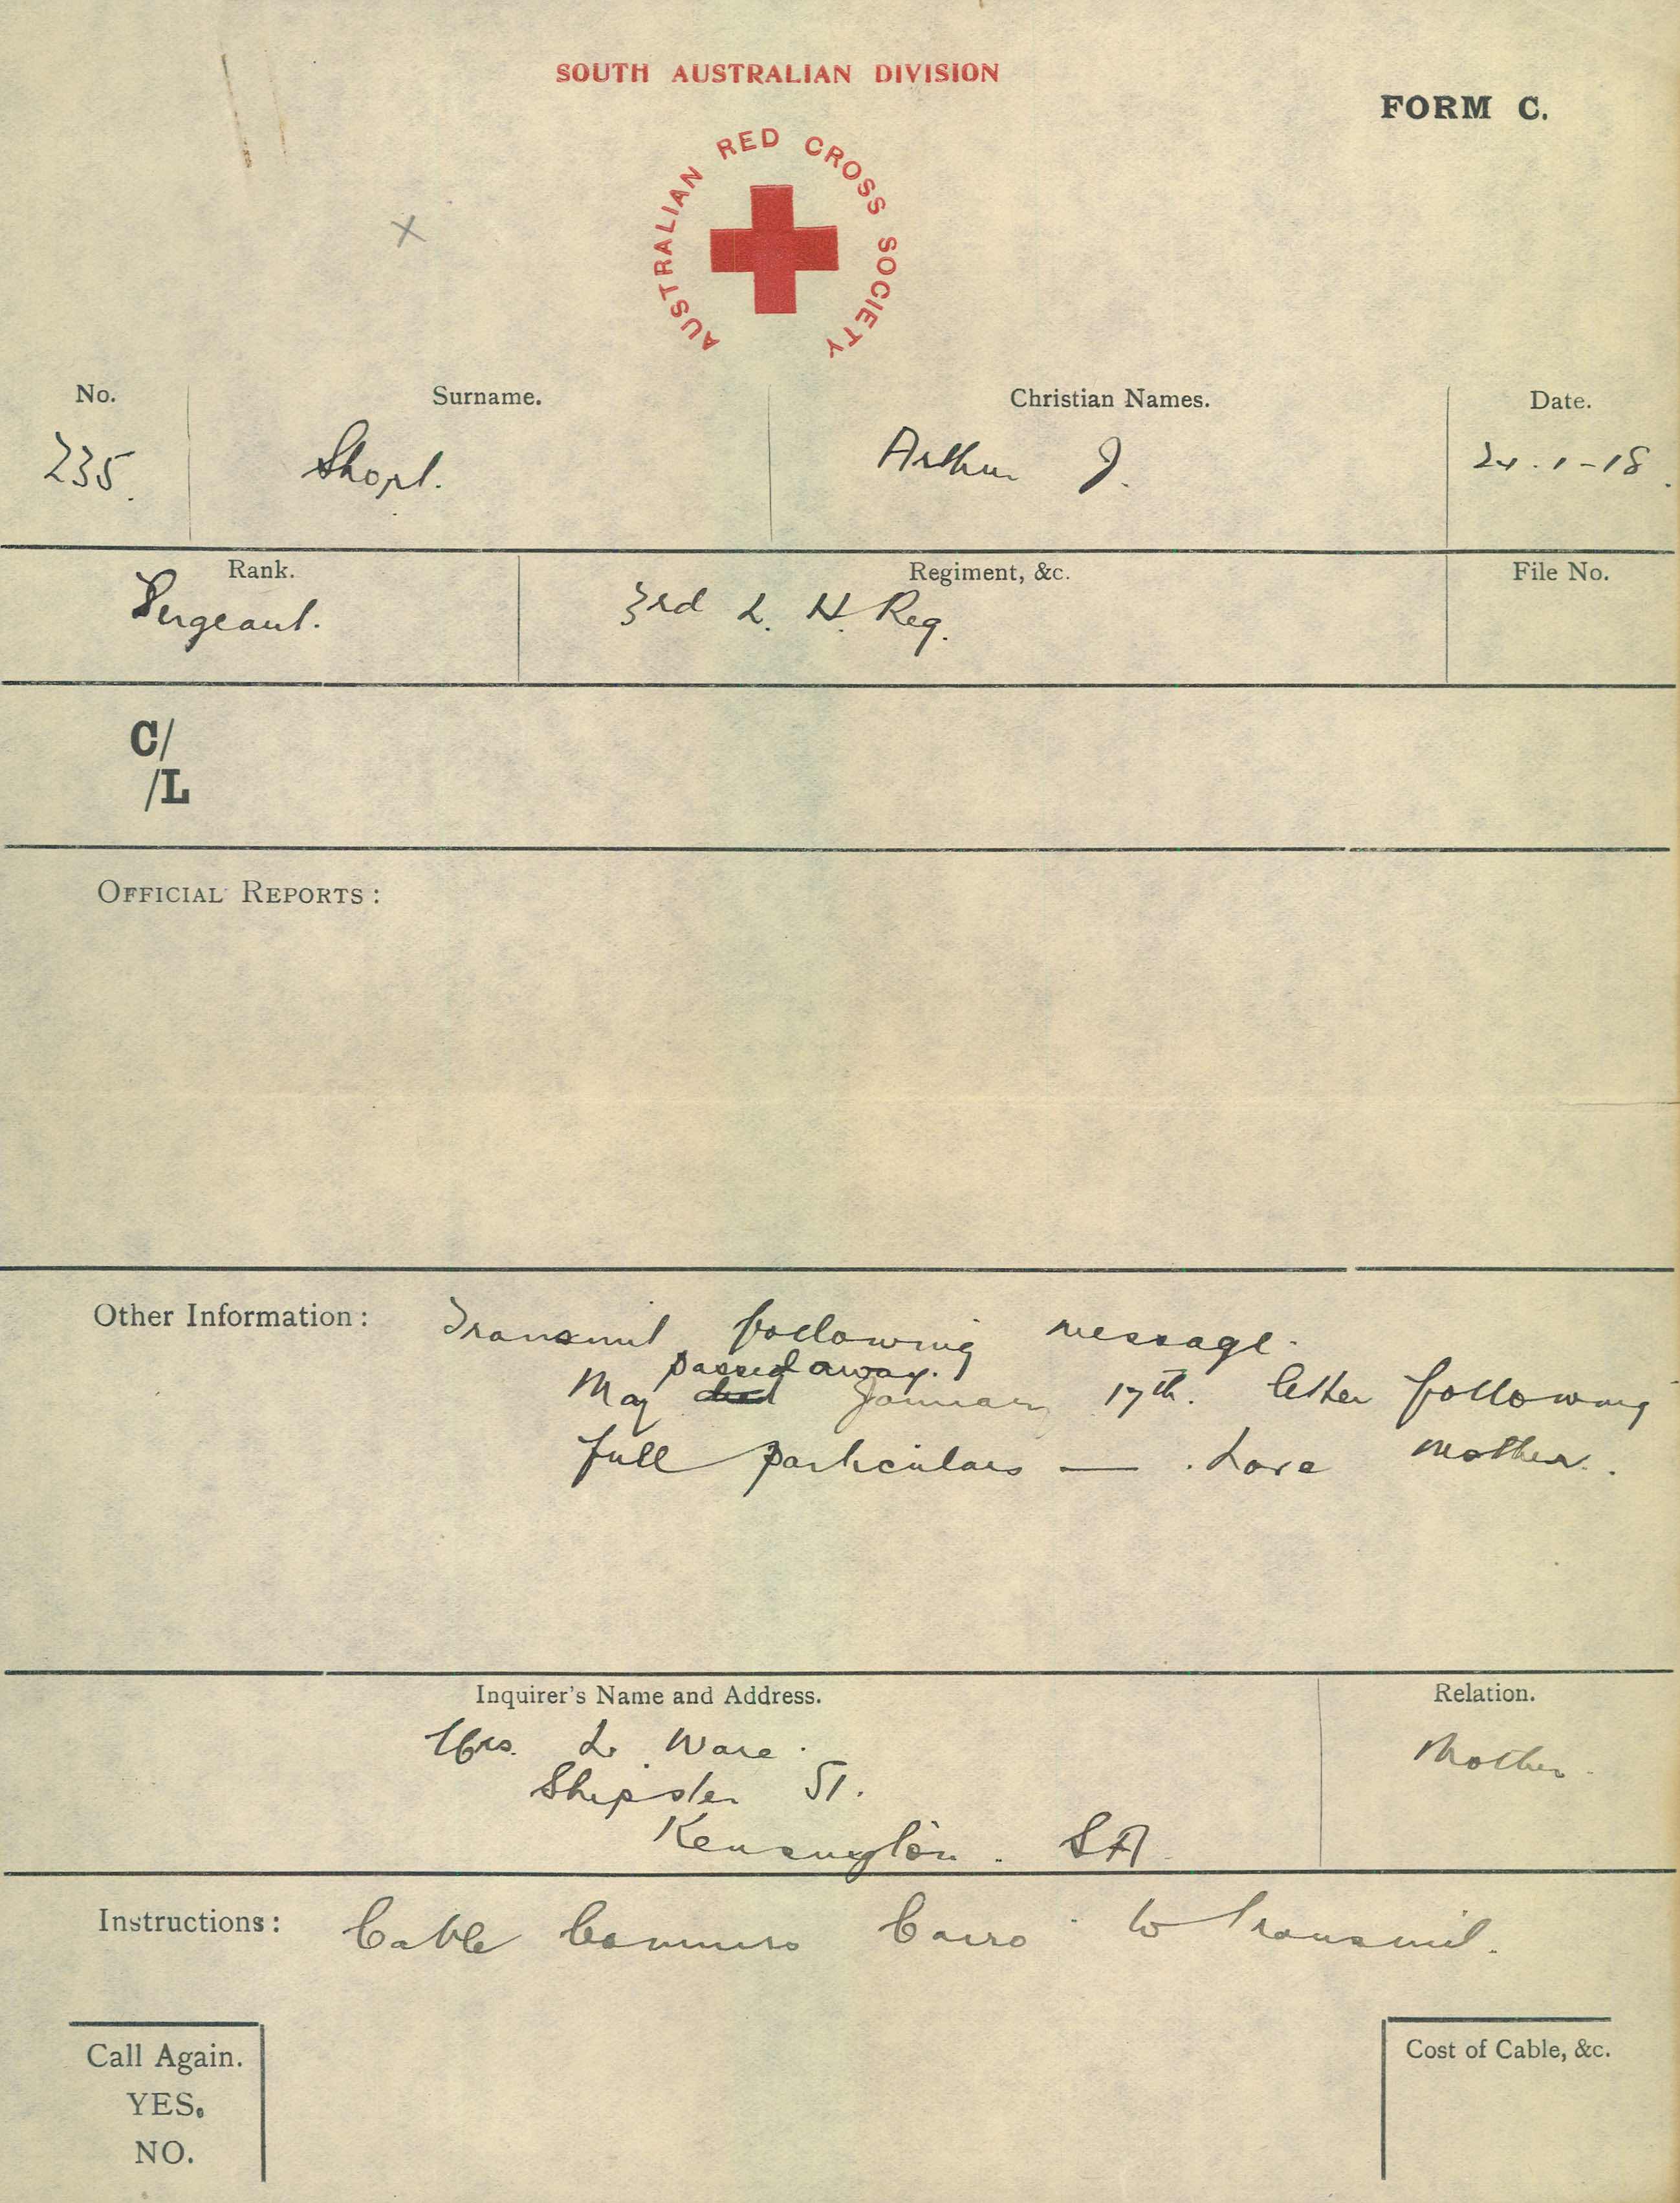 SOUTH AUSTRALIAN DIVISION
FORM C.
AUSTRALIAN RED CROSS SOCIETY
x
No. Surname. Christian Names. Date.
235. Short. Arthur J. 24.1-18.
Rank. Regiment, &c. File No.
Sergeant. 3rd L. H. Reg.
C/
/L
OFFICIAL REPORTS:
Other Information: Transmit following message.
passed away.
May died January 17th. letter following
full particulars — Love Mother.
Inquirer's Name and Address. Relation.
Mrs. L. Ware. Mother.
Shipster St.
Kensington. SA
Instructions: Cable Commrs Cairo to transmit.
Call Again. Cost of Cable, &c.
YES.
NO.